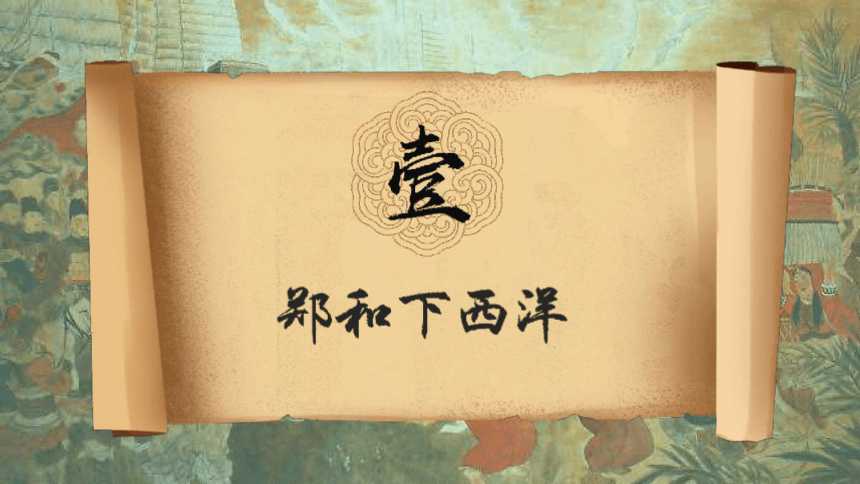 壹
郑和下西洋